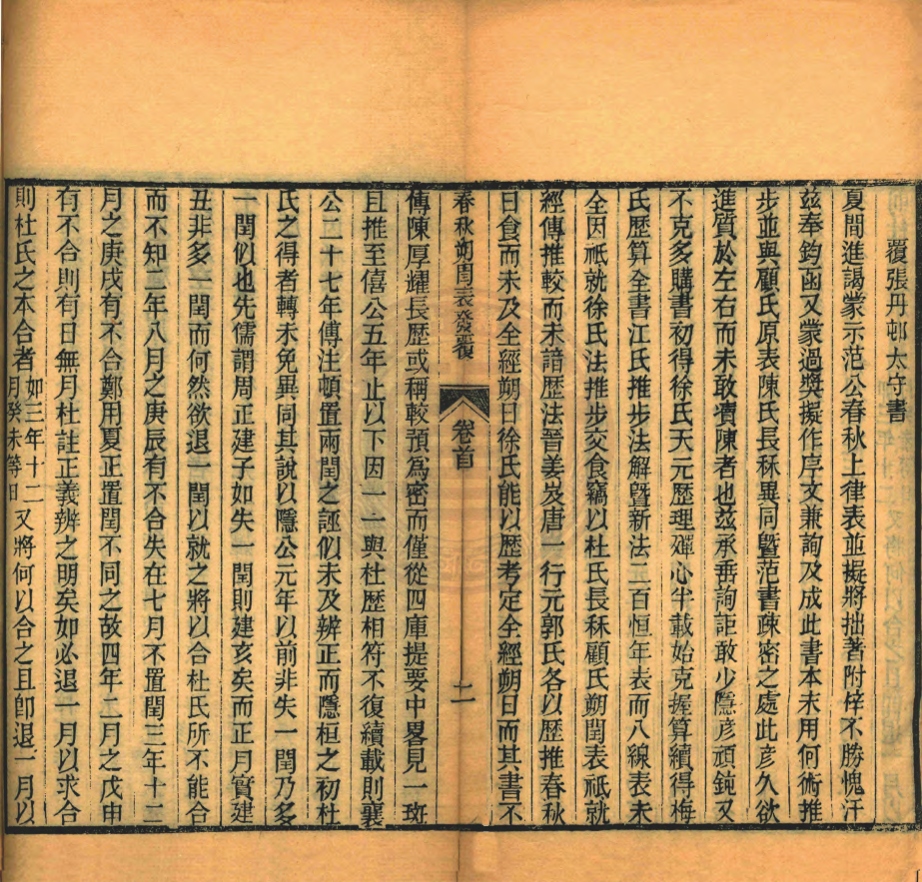 覆張丹邨太守書
夏間進謁蒙示范公春秋上律表並擬將拙著附梓不勝愧汗
茲奉鈞函又蒙過獎擬作序文兼詢及成此書本末用何術推
步並與顧氏原表陳氏長秝異同曁范書疎密之處此彥久欲
進質於左右而未敢瀆陳者也茲承垂詢詎敢少隱彥頑鈍又
不克多購書初得徐氏天元歷理殫心半載始克握算續得梅
氏歷算全書江氏推步法解曁新法二百恒年表而八線表未
全因祇就徐氏法推步交食竊以杜氏長秝顧氏朔閏表祇就
經傳推較而未諳歷法晉姜岌唐一行元郭氏各以歷推春秋
日食而未及全經朔日徐氏能以歷考定全經朔日而其書不
春秋朔閏表發覆 卷首 二
傳陳厚耀長歷或稱較預為密而僅從四庫提要中畧見一斑
且推至僖公五年止以下因一一與杜歷相符不復續載則襄
公二十七年傳注頓置兩閏之誣似未及辨正而隱桓之初杜
氏之得者轉未免異同其說以隱公元年以前非失一閏乃多
一閏似也先儒謂周正建子如失一閏則建亥矣而正月實建
丑非多一閏而何然欲退一閏以就之將以合杜氏所不能合
而不知二年八月之庚辰有不合失在七月不置閏三年十二
月之庚戌有不合鄭用夏正置閏不同之故四年二月之戊申
有不合則有日無月杜註正義辨之明矣如必退一月以求合
則杜氏之本合者如三年十二月癸未等日又將何以合之且卽退一月以